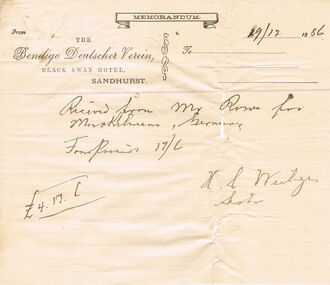 MEMORANDUM.
From
THE
Bendigo Deutscher Verein,
BLACK SWAN HOTEL,
SANDHURST.
19/12 1886
To
Received from Mr Rowe for
Germany
Four Pounds 17/6
£4.17.6
H